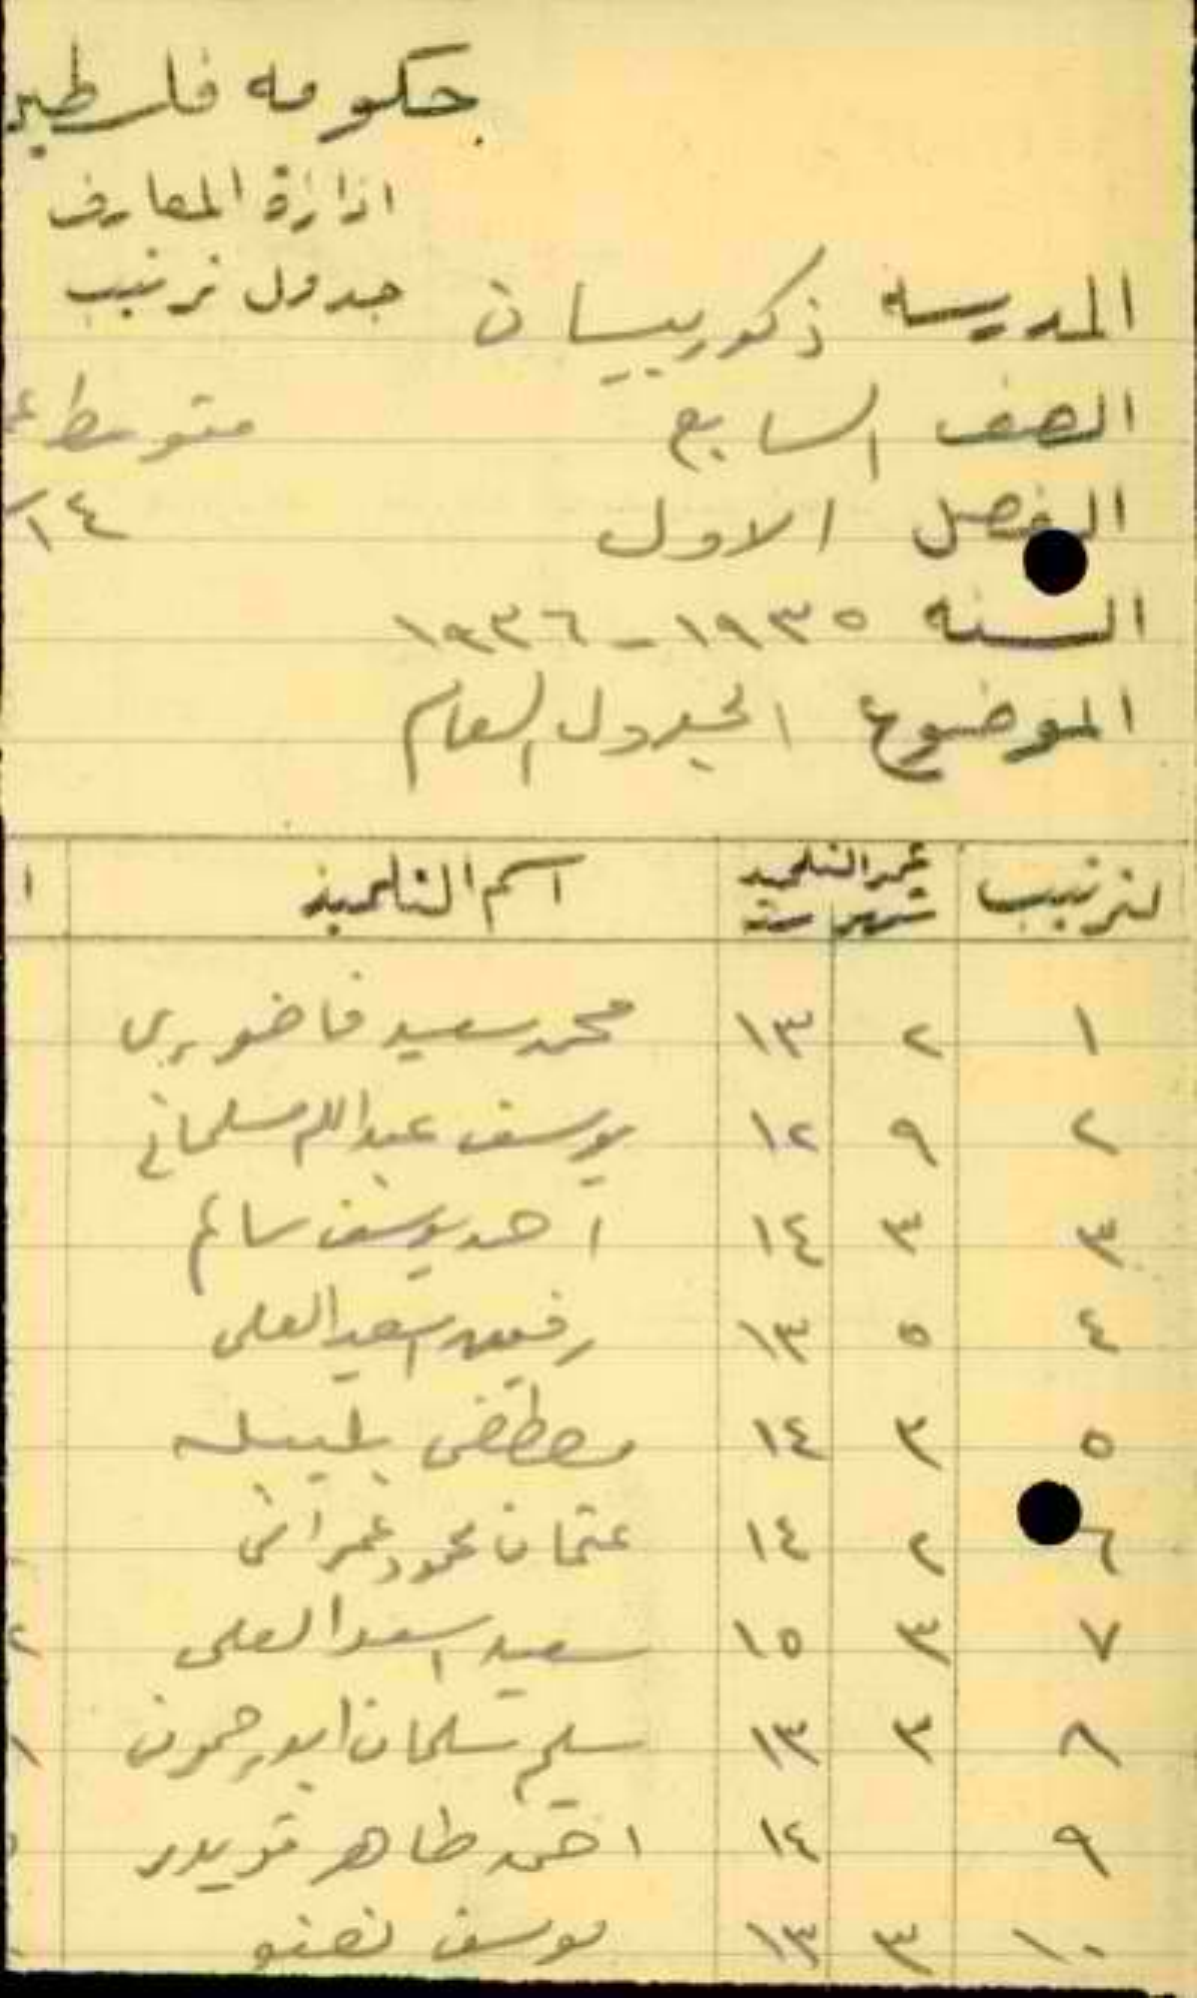 حكومه فلسطين
ادارة المعارف
جدول ترتيب
المدرسه ذكور بيسان
الصف السابع متوسط
الفصل الاول ١٤
السنه ١٩٣٥ - ١٩٣٦
الموضوع الجدول العام
لترتيب عمر التلميذ اسم التلميذ
شهر سنة
١ ٢ ١٣ محمد سعيد فاخوري
٢ ٩ ١٢ يوسف عبدالله مسلماني
٣ ٣ ١٤ احمد يوسف سالم
٤ ٥ ١٣ رفيق اسعد العلي
٥ ٣ ١٤ مصطفى بليبله
٦ ٢ ١٤ عثمان محمود عمراني
٧ ٣ ١٥ سعيد اسعد العلي
٨ ٣ ١٣ سليم سلمان ابو رحمون
٩ ١٤ احمد طاهر قويدر
١٠ ٣ ١٣ يوسف